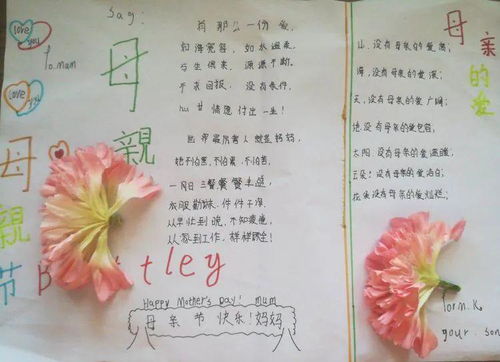 love
you
To. mum
love
you
母
親
节
Say:
母
親
有那么一份爱,
如海宽容,如水温柔,
与生俱来,源源不断。
不求回报,没有条件,
情愿付出一生!
她不怕苦,不怕累,不怕苦,
一日三餐餐餐
件件干净,
从早忙到晚,不知疲倦,
从家到工作,样样
tley
Happy Mother's Day! mum
母亲节快乐!妈妈
母亲
的爱
山,没有母亲的爱高;
海,没有母亲的爱深;
天,没有母亲的爱广阔;
地,没有母亲的爱包容;
太阳,没有母亲的爱温暖;
云朵,没有母亲的爱洁白;
花朵没有母亲的爱灿烂;
form. K
your. son